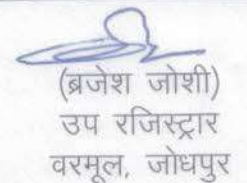 (ब्रजेश जोशी)
उप रजिस्ट्रार
वरमूल, जोधपुर